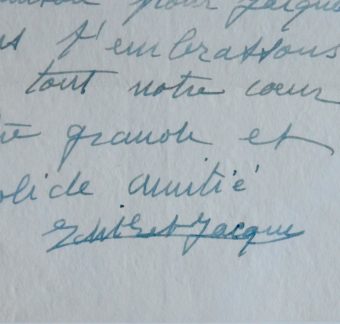 pour Jacque
t'embrassons
tout notre cœur
grande et
olide amitié
Edith et Jacque